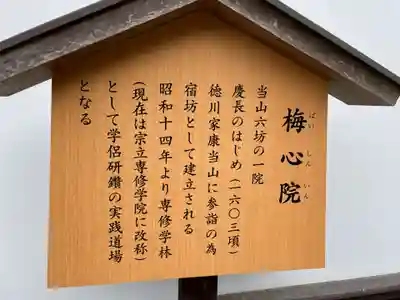 梅心院
ばいしんいん
当山六坊の一院
慶長のはじめ(一六〇三頃)
徳川家康当山に参詣の為
宿坊として建立される
昭和十四年より専修学林
(現在は宗立専修学院に改称)
として学侶研鑽の実践道場
となる